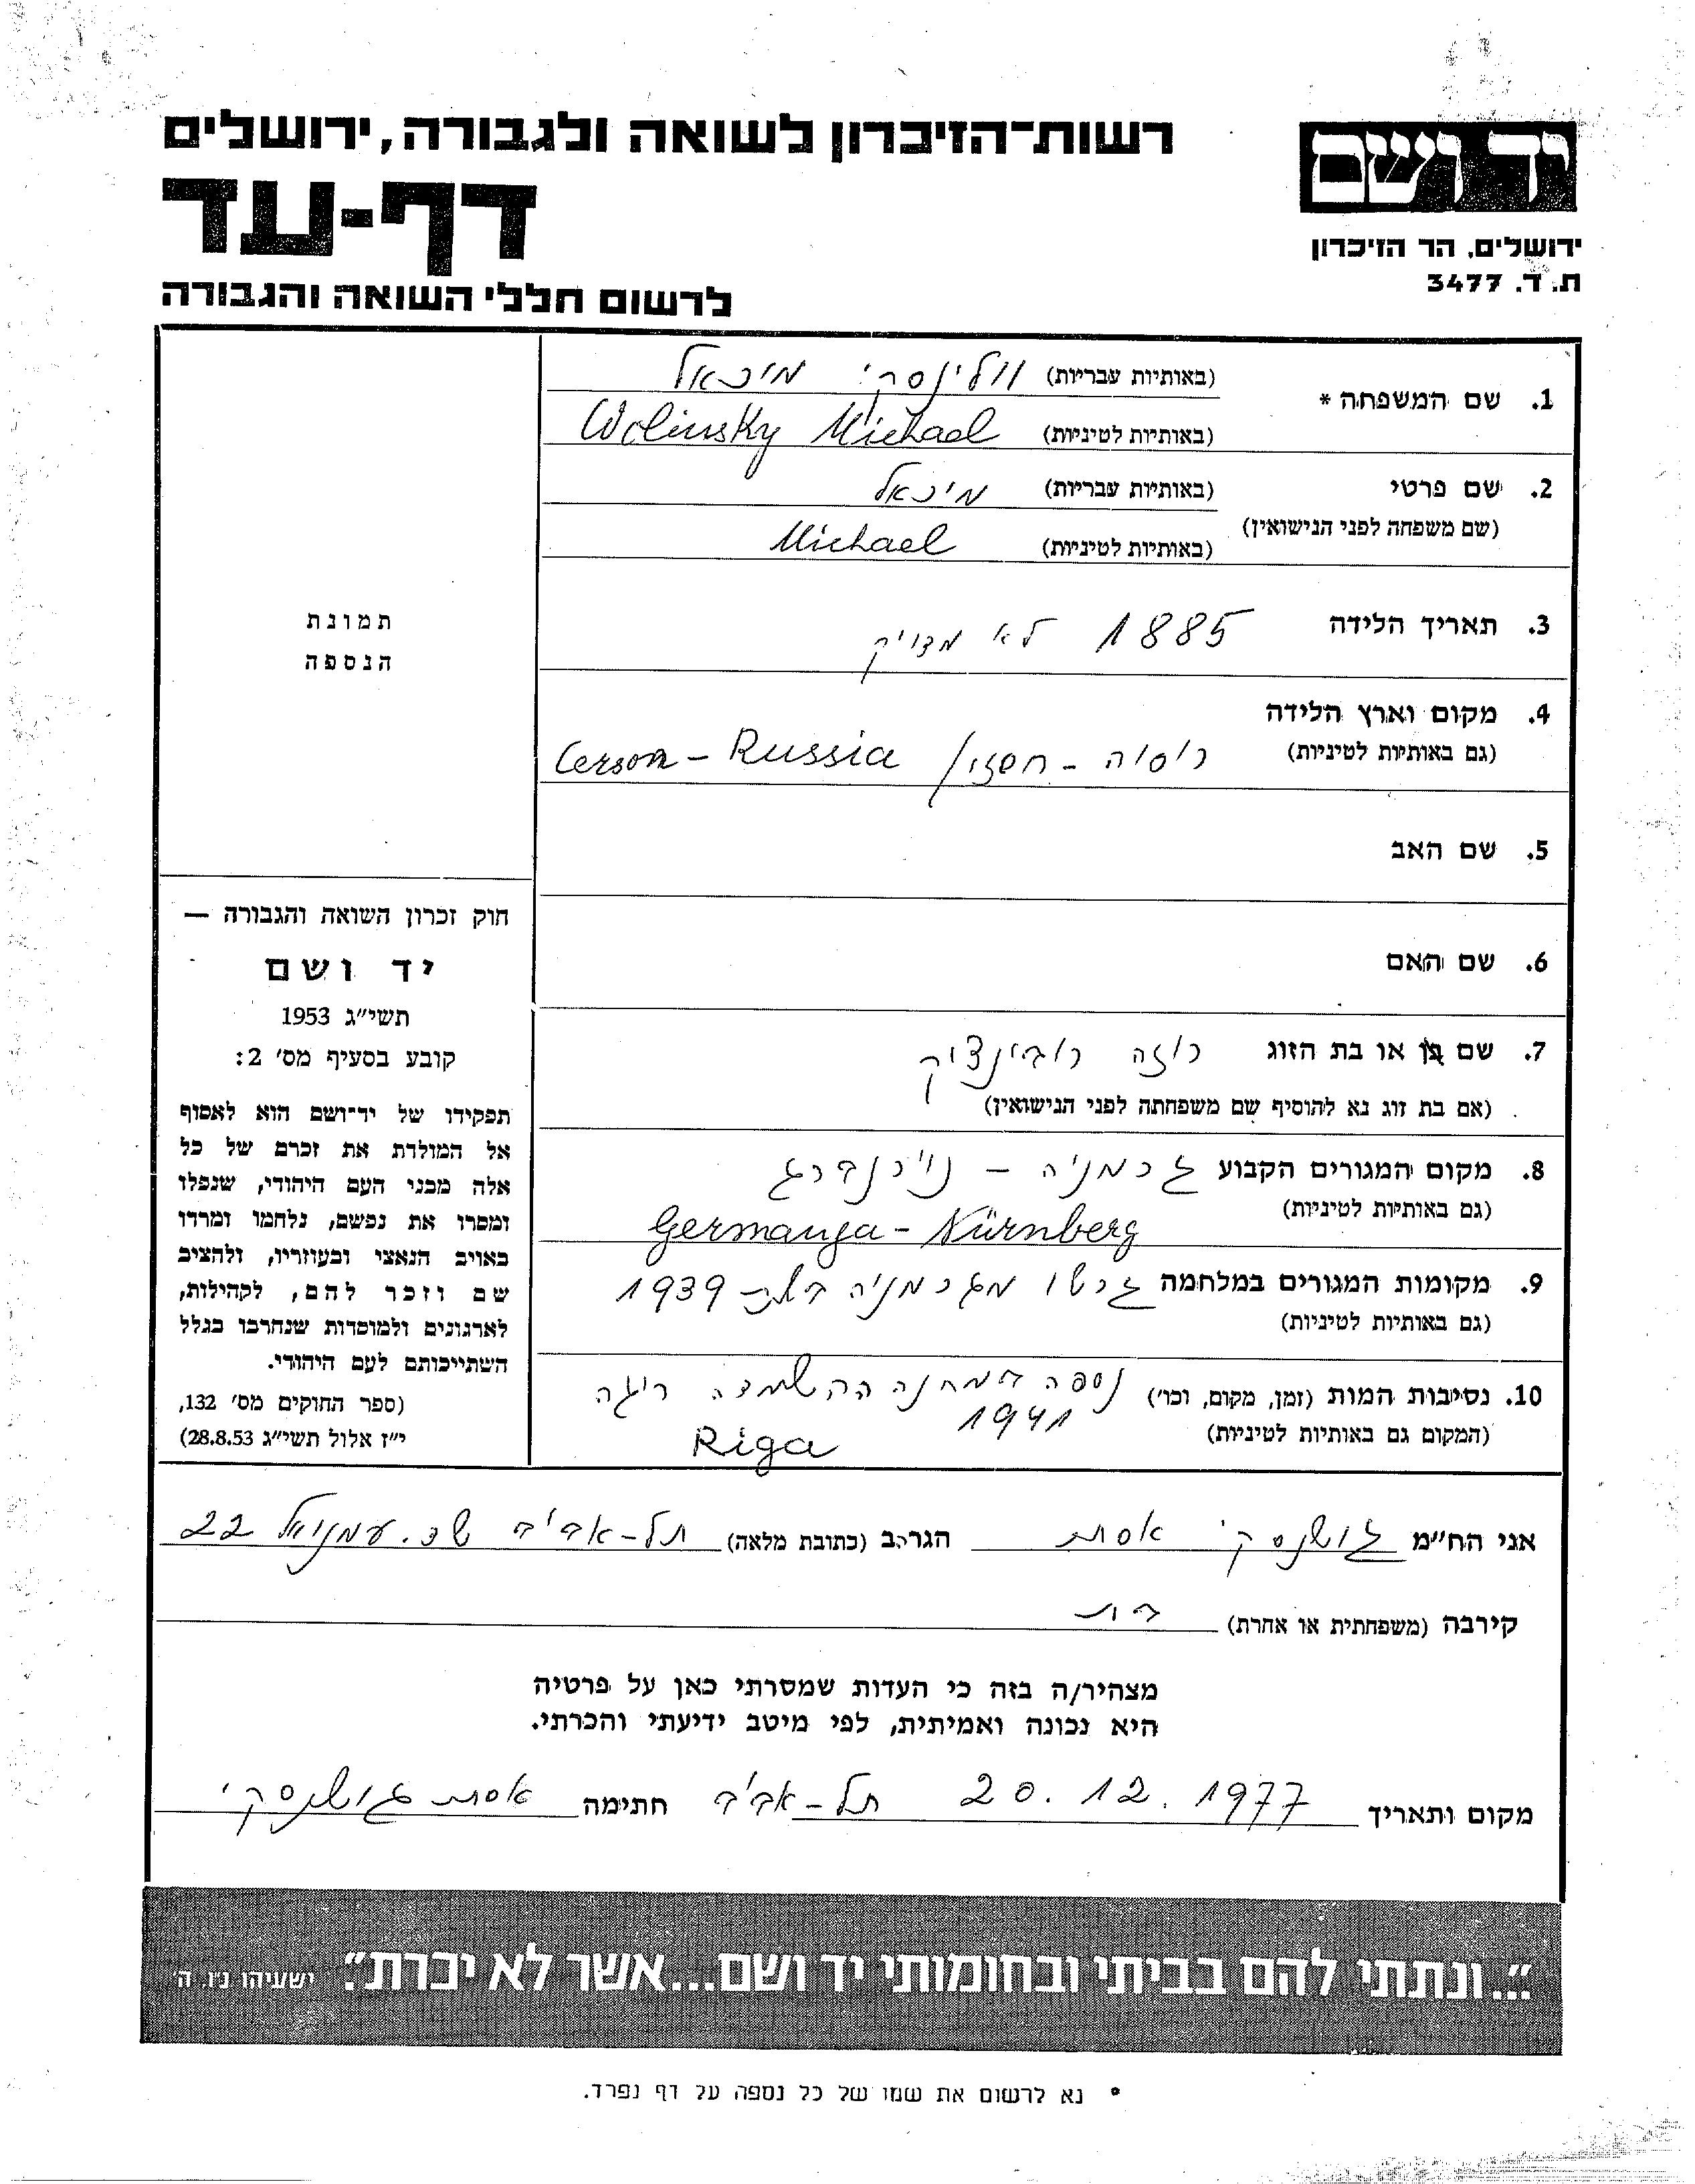 רשות־הזיכרון לשואה ולגבורה, ירושלים
יד ושם
דף-עד
ירושלים, הר הזיכרון
ת. ד. 3477
לרשום חללי השואה והגבורה
1. שם המשפחה * (באותיות עבריות) וולינסקי מיכאל
(באותיות לטיניות) Wolinsky Michael
2. שם פרטי (באותיות עבריות) מיכאל
(שם משפחה לפני הנישואין)
(באותיות לטיניות) Michael
3. תאריך הלידה 1885 לא מדויק
4. מקום וארץ הלידה
(גם באותיות לטיניות) רוסיה - Cerson - Russia
5. שם האב
6. שם האם
7. שם בן או בת הזוג רוזה רובינצ'יק
(אם בת זוג נא להוסיף שם משפחתה לפני הנישואין)
8. מקום המגורים הקבוע גרמניה - נוירנברג
(גם באותיות לטיניות)
Germanya - Nürnberg
9. מקומות המגורים במלחמה גרשו מגרמניה בשנת 1939
(גם באותיות לטיניות)
10. נסיבות המות (זמן, מקום, וכו') נספה במחנה ההשמדה ריגה
1941
(המקום גם באותיות לטיניות) Riga
תמונת
הנספה
חוק זכרון השואה והגבורה —
יד ושם
תשי"ג 1953
קובע בסעיף מס' 2:
תפקידו של יד־ושם הוא לאסוף
אל המולדת את זכרם של כל
אלה מבני העם היהודי, שנפלו
ומסרו את נפשם, נלחמו ומרדו
באויב הנאצי ובעוזריו, ולהציב
שם וזכר להם, לקהילות,
לארגונים ולמוסדות שנחרבו בגלל
השתייכותם לעם היהודי.
(ספר החוקים מס' 132,
י"ז אלול תשי"ג 28.8.53)
אני הח"מ גושנסקי אסת הגר ב (כתובת מלאה) תל-אביב שד. עמנואל 22
קירבה (משפחתית או אחרת) בת
מצהיר/ה בזה כי העדות שמסרתי כאן על פרטיה
היא נכונה ואמיתית, לפי מיטב ידיעתי והכרתי.
מקום ותאריך 20.12.1977 תל-אביב חתימה אסת גושנסקי
"...ונתתי להם בביתי ובחומותי יד ושם...אשר לא יכרת". ישעיהו נ"ו, ה'
* נא לרשום את שמו של כל נספה על דף נפרד.